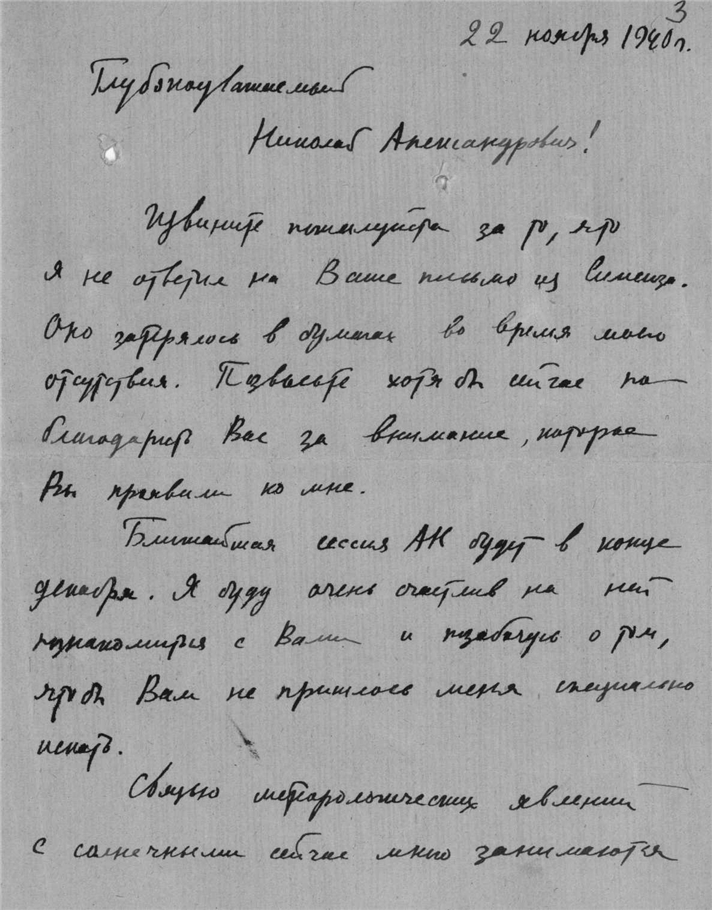 3
22 ноября 1940 г.
Глубокоуважаемый
Николай Александрович!
Извините пожалуйста за то, что
я не ответил на Ваше письмо из Симеиза.
Оно затерялось в бумагах во время моего
отсутствия. Позвольте хотя бы сейчас по
благодарить Вас за внимание, которое
Вы проявили ко мне.
Ближайшая сессия АК будет в конце
декабря. Я буду очень счастлив на ней
познакомиться с Вами и позабочусь о том,
чтобы Вам не пришлось меня специально
искать.
Связью метеорологических явлений
с солнечными сейчас много занимаются